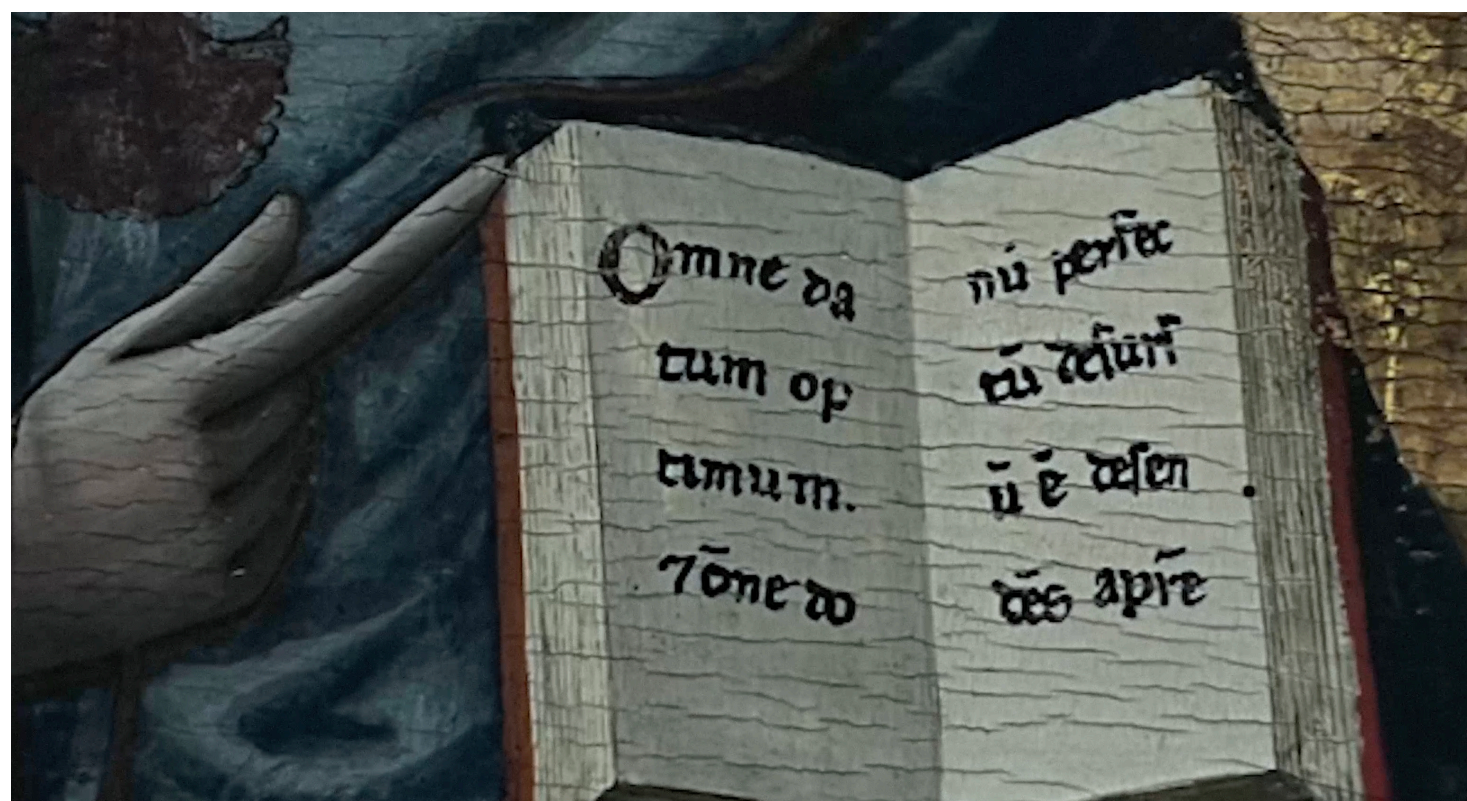 Omne da
tum op
timum.
⁊ ōne do
nū perfec
tū desurſ
ū ē deſen
dēs a pr̄e